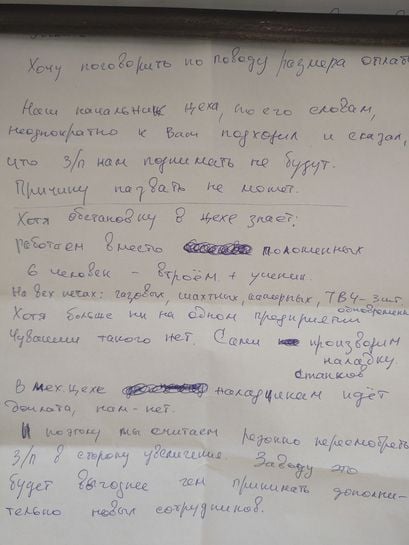 Хочу поговорить по поводу размера оплаты
Наш начальник цеха, по его словам,
неоднократно к Вам подходил и сказал,
что З/п нам поднимать не будут.
Причину назвать не может.
Хотя обстановку в цехе знает:
Работаем вместо положенных
6 человек – втроём + ученик.
На всех печах: газовых, шахтных, камерных, ТВЧ–3шт.
одновременно
Хотя больше ни на одном предприятии
Чувашии такого нет. Сами производим
наладку
станков
В мех. цехе наладчикам идёт
доплата, нам – нет.
И поэтому мы считаем резонно пересмотреть
З/п в сторону увеличения. Заводу это
будет выгоднее чем принимать дополни-
тельно новых сотрудников.